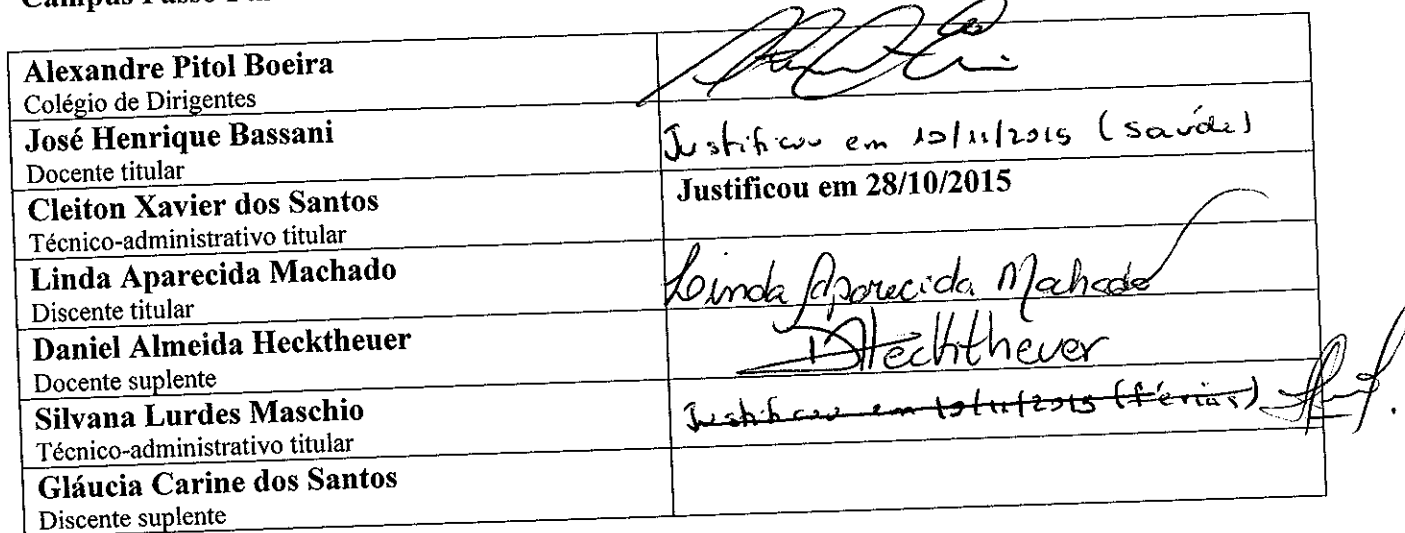 Alexandre Pitol Boeira
Colégio de Dirigentes
José Henrique Bassani
Docente titular
Justificou em 10/11/2015 (saúde)
Cleiton Xavier dos Santos
Técnico-administrativo titular
Justificou em 28/10/2015
Linda Aparecida Machado
Discente titular
Linda Aparecida Machado
Daniel Almeida Hecktheuer
Docente suplente
DHecktheuer
Silvana Lurdes Maschio
Técnico-administrativo titular
Justificou em 10/11/2015 (férias)
Gláucia Carine dos Santos
Discente suplente